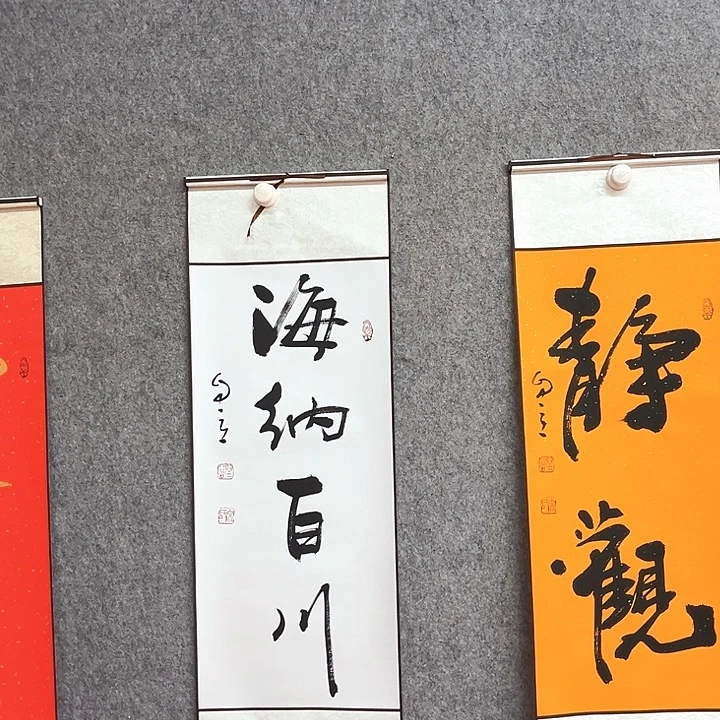 海纳百川
静觀